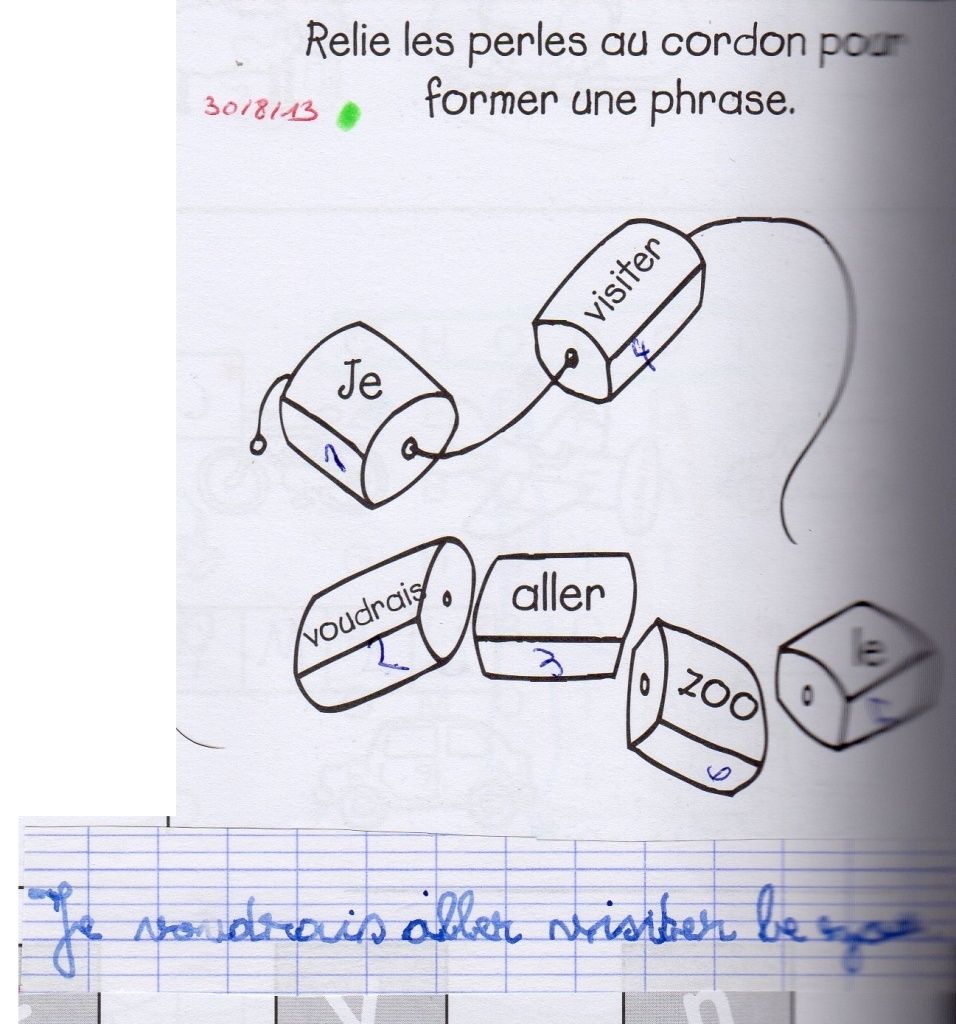 Relie les perles au cordon pour
former une phrase.
30/8/13
visiter
4
Je
1
voudrais
2
aller
3
zoo
6
le
5
Je voudrais aller visiter le zoo